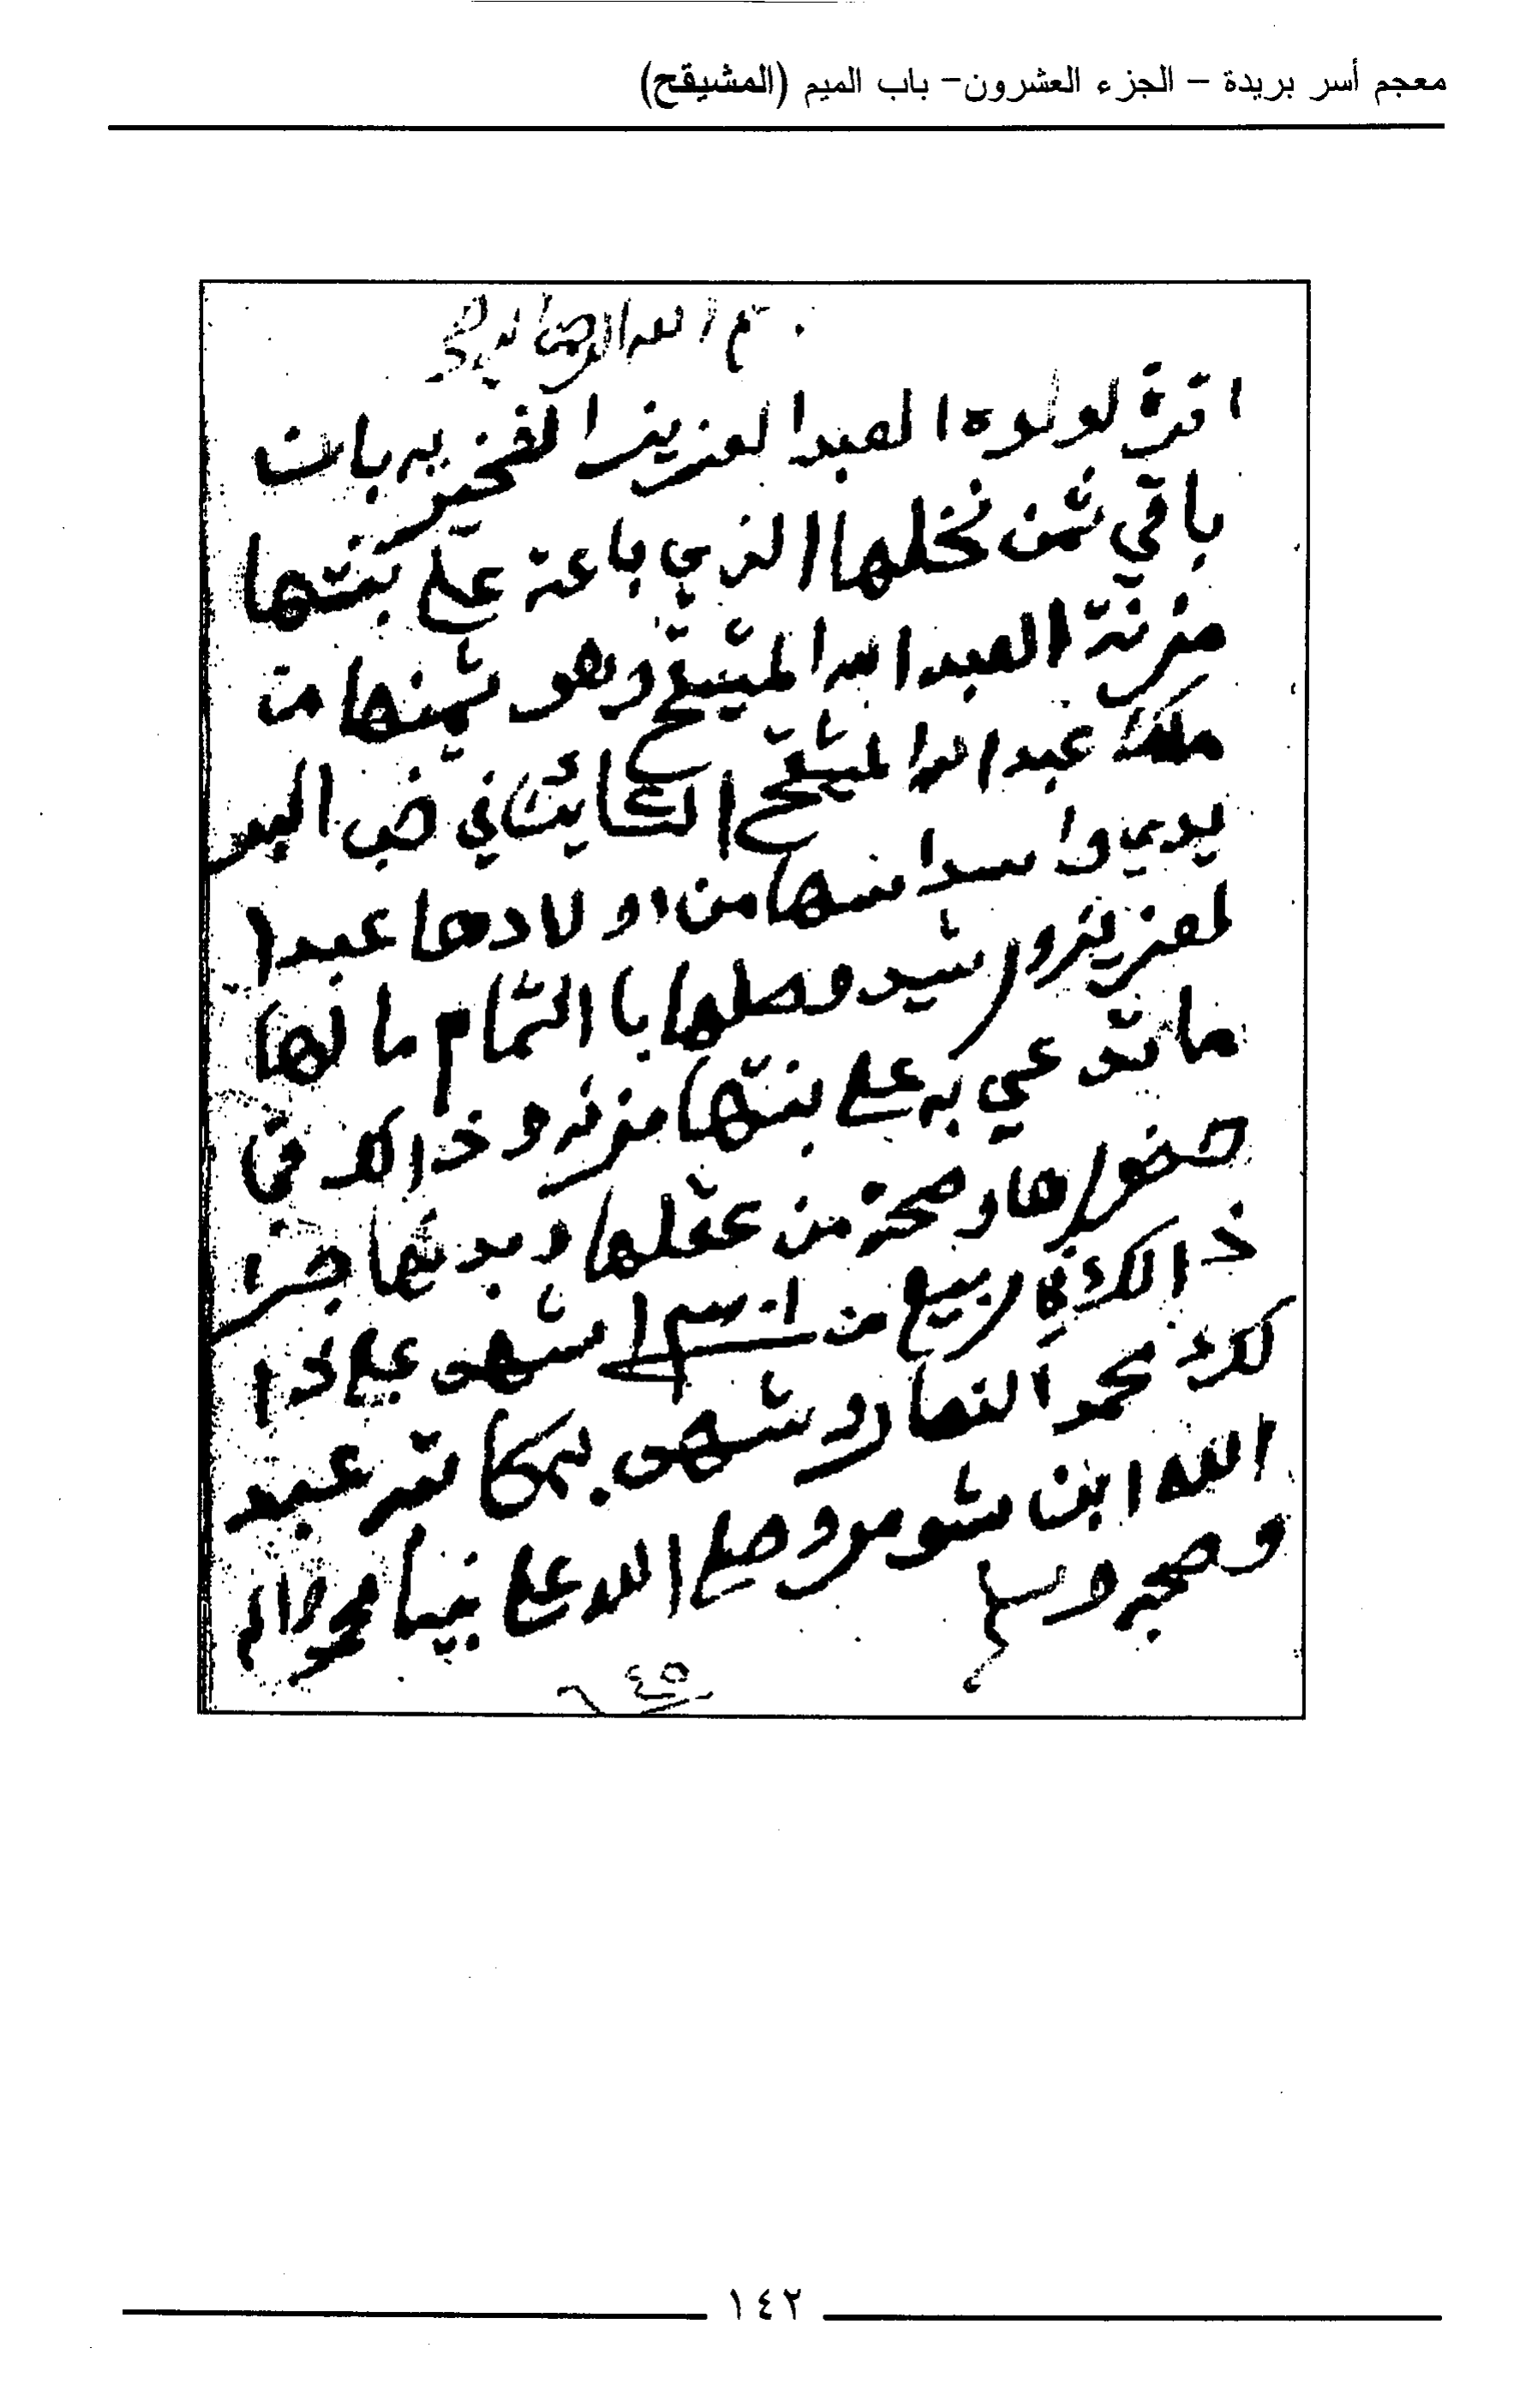 معجم أسر بريدة – الجزء العشرون– باب الميم (المشيقح)
بسم الله الرحمن الرحيم
اقرة لولوه العبدا لعزيز الفخير به بان
باقي ثمن نخلها الذي باعته علي بنتها
مزنة العبدالله المشيقح وهو ثمنها من
ملك عبدالله المشيقح الكاين في خب البر
يدي وا سدا منها من اولادها عبدا
لعزيز ورشيد وصلها با التمام ما لها
ما تدعي به علي بنتها مزنه وذالك في
حضورها وصحة من عقلها وبدنها جرا
ذالك في ربيع من شهد علي ذا
لك محمد النصار وشهد به كاتبه عبد
الله ابن شومر وصلي الله علي نبينا محمد واله
وصحبه وسلم
١٤٢